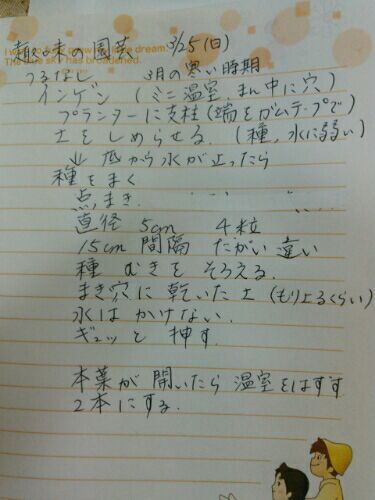 趣味の園芸 3/25(日)
The blue sky has broadened.
つるなし 3月の寒い時期
インゲン (ミニ温室、まん中に穴)
プランターに支柱(端をガムテープで)
土をしめらせる。(種、水に弱い)
↓ 底から水が止ったら
種をまく
点まき
直径 5cm 4粒
15cm 間隔 たがい違い
種 むきをそろえる.
まき穴に乾いた土(もり上るくらい)
水はかけない.
ギュッと押す.
本葉が開いたら温室をはずす
2本にする.